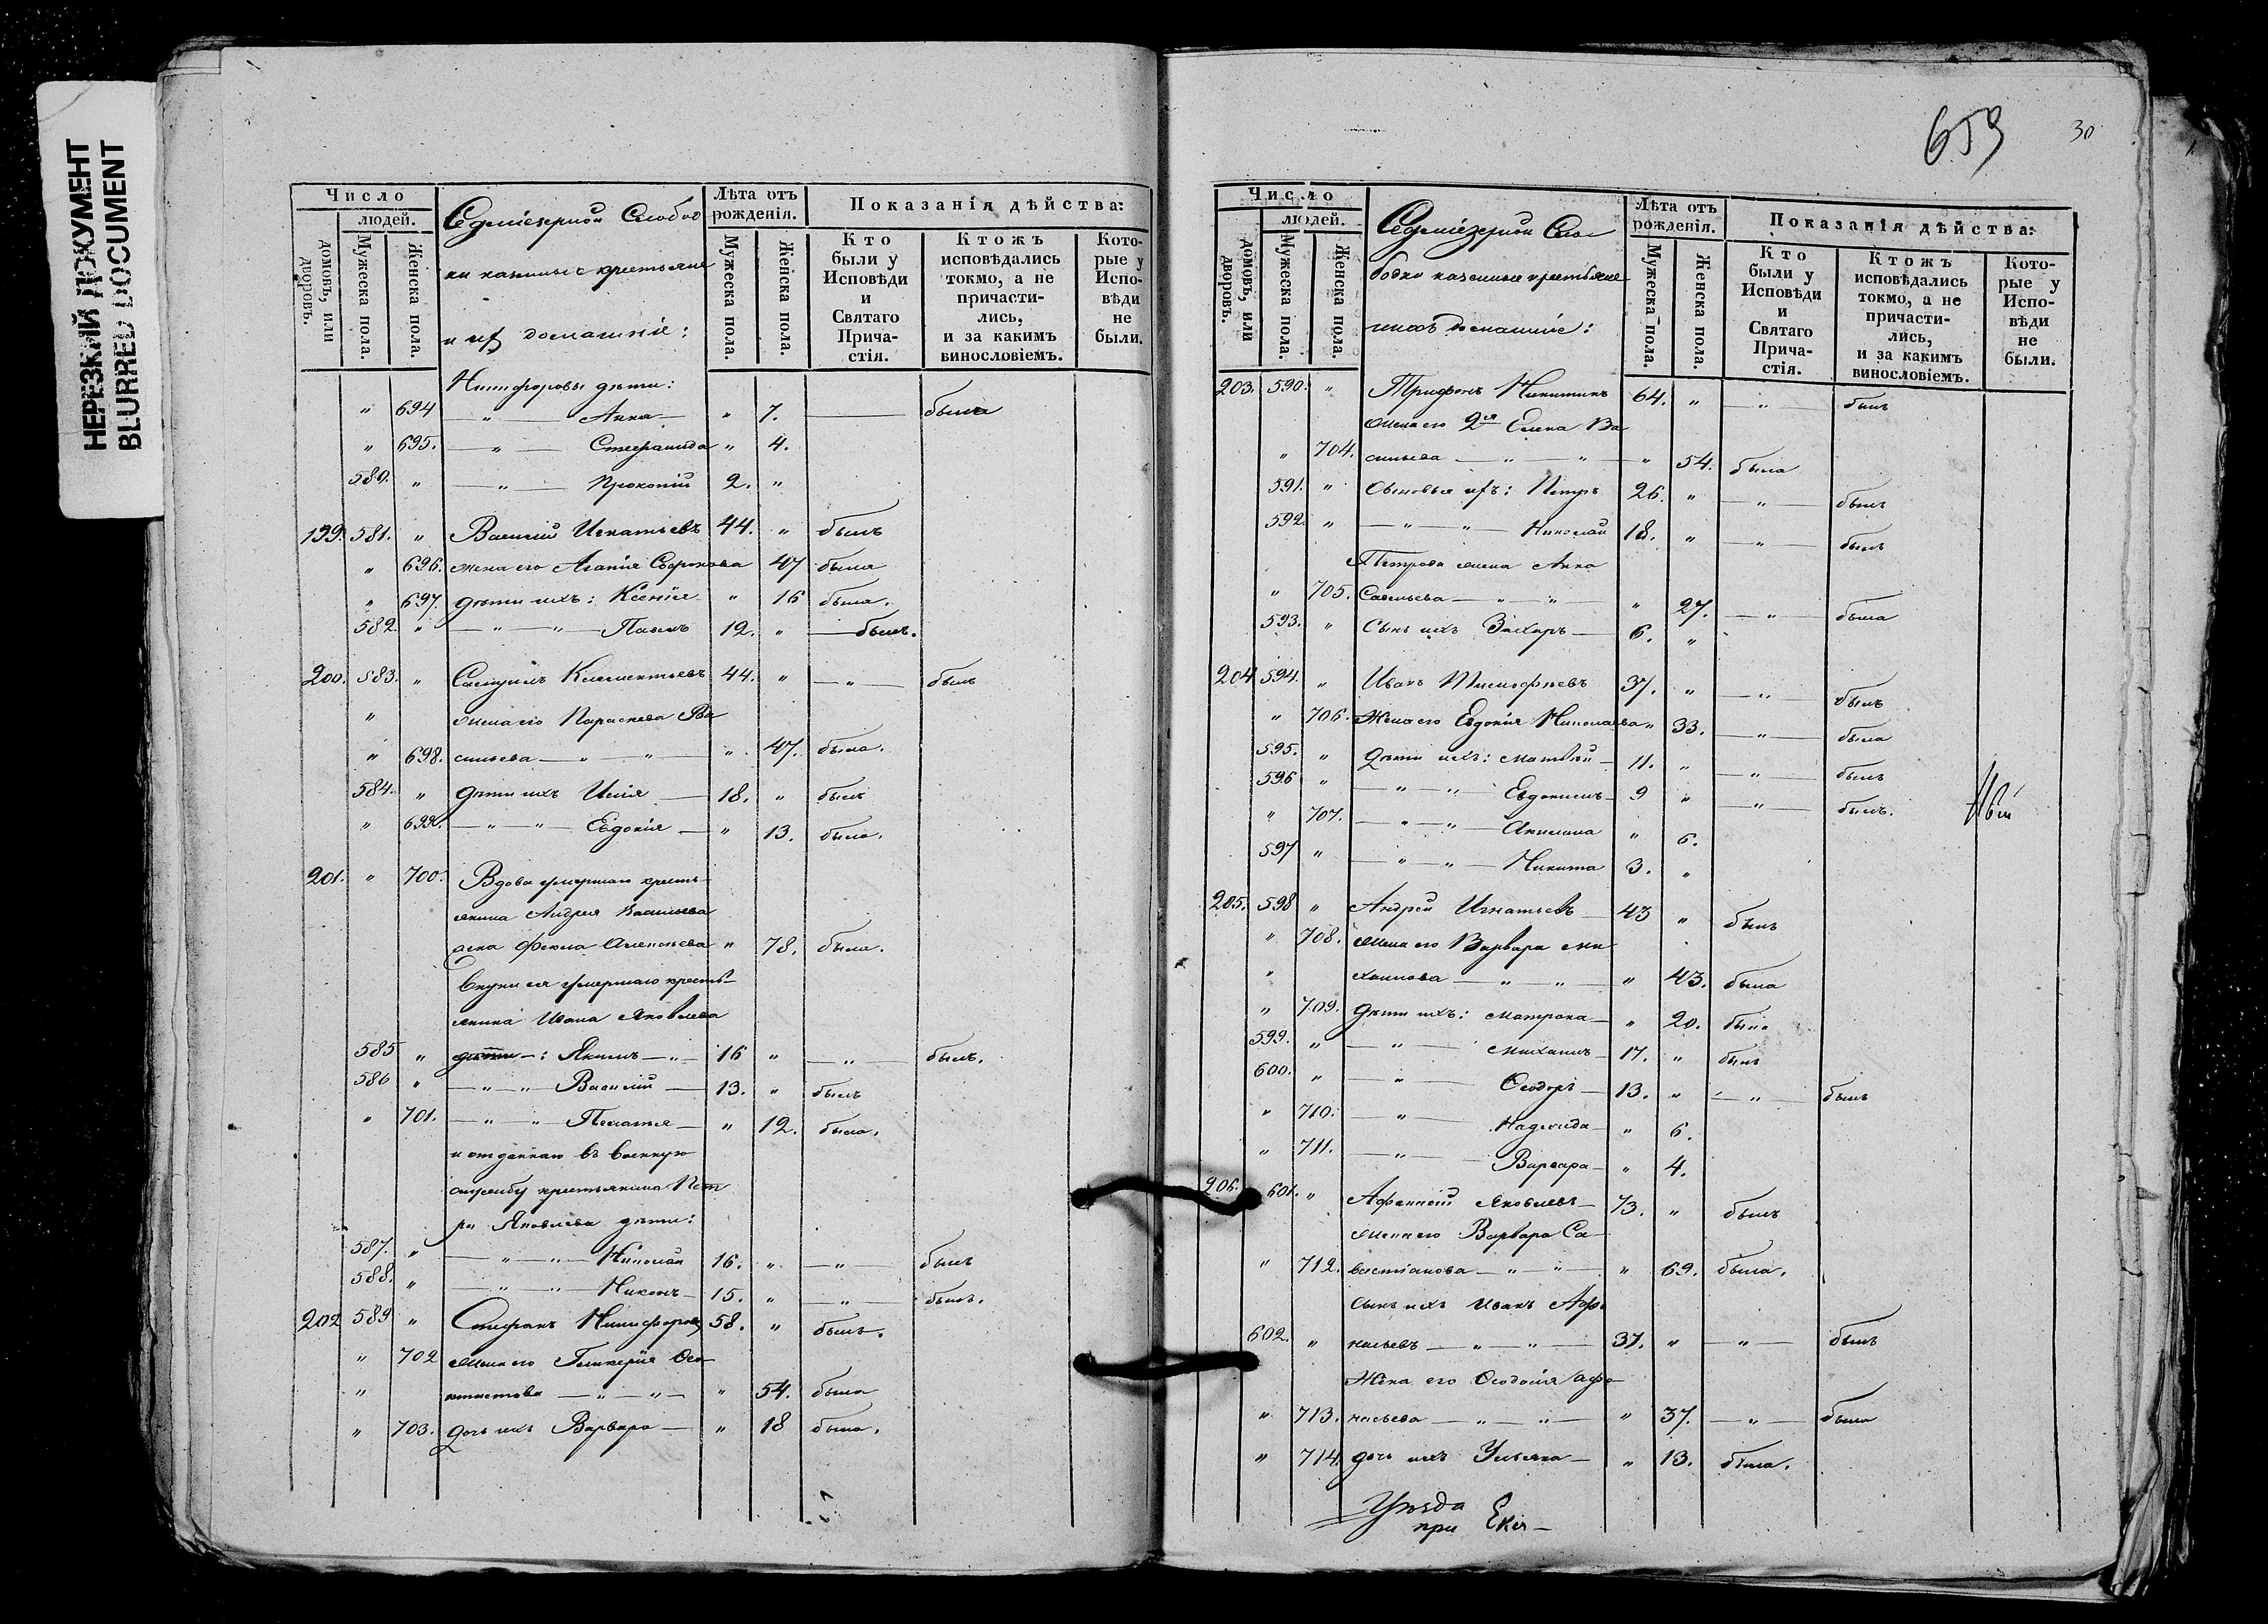 НЕРЕЗКИЙ ДОКУМЕНТ
BLURRED DOCUMENT
Число
людей.
домовъ, или дворовъ.
Мужеска пола.
Женска пола.
Седміезерной Слобод
ки казенные крестьяне
и ихъ домашніе:
Лѣта отъ рожденія.
Мужеска пола.
Женска пола.
Показанія дѣйства:
Кто были у Исповѣди и Святаго Прича-стія.
Ктожъ исповѣдались токмо, а не причасти-лись, и за какимъ винословіемъ.
Кото-рые у Испо-вѣди не были.
Никифоровы дѣти:
" 694 — " — Анна — " 7. — была
" 695. — " — Стефанида " 4.
580. " — " — Прокопій 2. "
199. 581. " Василій Игнатьевъ 44. " былъ
" 696. жена его Агапія 47 была
" 697. дѣти ихъ: Ксенія " 16 была.
582. " — " — " — Павелъ 12. " — былъ.
200. 583. " Самуилъ Климентьевъ 44. " — " — былъ
" жена его Параскева Ва
" 698. сильева — " — " — " 47. была.
584. " дѣти ихъ Илія — 18. " былъ
" 699. — " — " — Евдокія — " 13. была.
201. " 700. Вдова умершаго кресть-
янина Андрея Васильева
жена Фекла Алексѣева " 78. была.
Внуки ея умершаго кресть-
янина Ивана Яковлева
585 " дѣти: Якимъ — " — 16 " — " — былъ.
586 " — " — " — Василій — 13. " былъ
" 701. — " — " — Пелагія — " 12. была.
и отданнаго въ военную
службу крестьянина Пет
ра Яковлева дѣти:
587. " — " — " — Николай 16. " — " — былъ
588. " — " — " — Никонъ 15. " — " — былъ.
202 589 " Стефанъ Никифоровъ 58. " былъ.
" 702 жена его Гликерія Өео
" ктистова — " — " — " 54. была
" 703. дочь ихъ Варвара — " 18 была.
659
30
Число
людей.
домовъ, или дворовъ.
Мужеска пола.
Женска пола.
Седміезерной Сло
бодки казенные крестьяне
и ихъ домашніе:
Лѣта отъ рожденія.
Мужеска пола.
Женска пола.
Показанія дѣйства:
Кто были у Исповѣди и Святаго Прича-стія.
Ктожъ исповѣдались токмо, а не причасти-лись, и за какимъ винословіемъ.
Кото-рые у Испо-вѣди не были.
203. 590. " Трифонъ Никитинъ 64. " — " — былъ
жена его 2я Елена Ва
" 704. сильева — " — " — " 54. была
591. " Сыновья ихъ: Петръ 26. " — " — былъ
592. " — " — " — Николай 18. " — " — былъ
Петрова жена Анна
" 705. Савельева — " — " — " 27. — " — была
593. " Сынъ ихъ Захаръ — 6. "
204 594. " Иванъ Тимофѣевъ 37. " — " — былъ
" 706. Жена его Евдокія Николаева " 33. — " — была
595. " Дѣти ихъ: Матвѣй — 11. " — " — былъ
596 " — " — " — Евдокимъ — 9 " — " — былъ.
" 707. — " — " — Акилина " 6.
597 " — " — " — Никита 3. "
205. 598 " Андрей Игнатьевъ 43 " былъ
" 708. жена его Варвара Ми
" хаилова — " — " — " 43. была
" 709. дѣти ихъ: Матрона — " 20. была
599. " — " — Михаилъ — 17. " былъ
600. " — " — Ѳеодоръ — 13. " — " — былъ
" 710. — " — Надежда — " 6.
" 711. — " — Варвара — " 4.
206. 601. " Афанасій Яковлевъ — 73. " былъ
жена его Варвара Са-
" 712. вастіанова — " — " — " 69. была.
Сынъ ихъ Иванъ Афа
602. " насьевъ — " — " — 37. " — " — былъ
Жена его Ѳеодосія Афа-
" 713. насьева — " — " — " 37. — " — была
" 714. дочь ихъ Ульяна — " 13. была.
Уѣзда
при